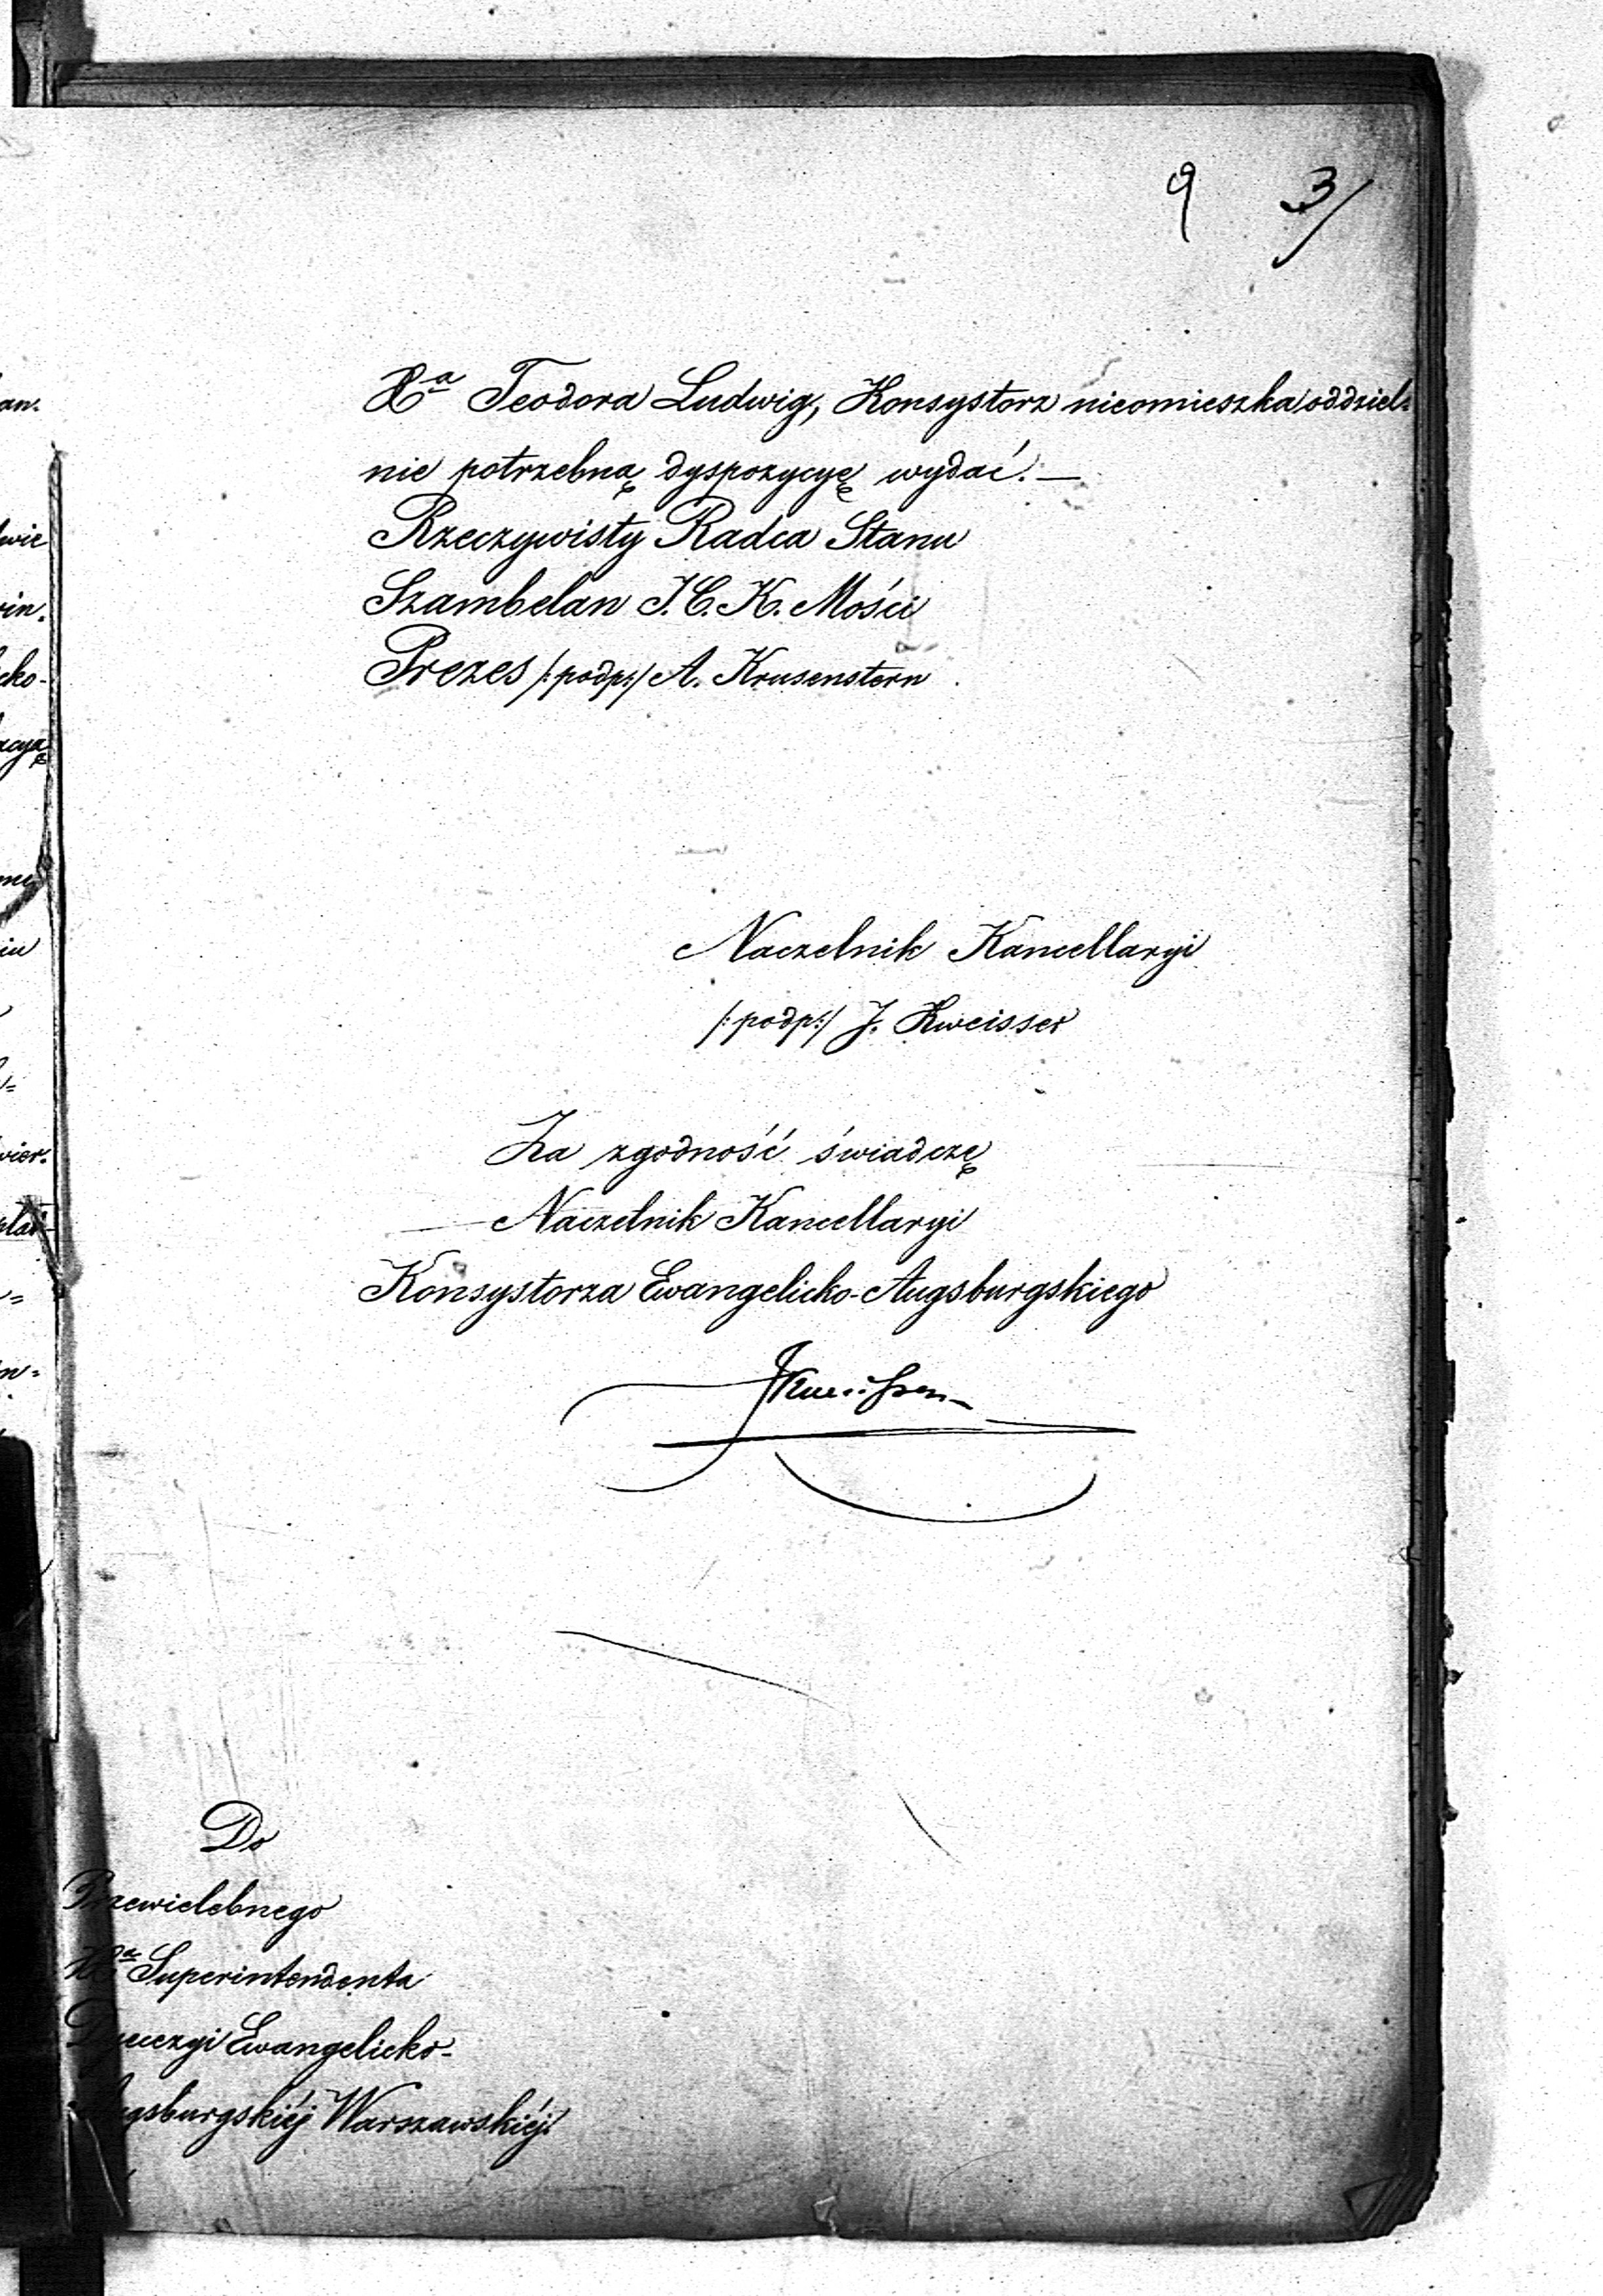 9 3/
Xa Teodora Ludwig, Konsystorz nieomieszka oddziel=
nie potrzebną dyspozycyę wydać. —
Rzeczywisty Radca Stanu
Szambelan J. C. K. Mości
Prezes /:podp:/ A. Krusenstern
Naczelnik Kancellaryi
/:podp:/ J. Kweisser
Za zgodność świadczę
Naczelnik Kancellaryi
Konsystorza Ewangelicko-Augsburgskiego
Do
Przewielebnego
Xa Superintendenta
Dyecezyi Ewangelicko-
Augsburgskiéj Warszawskiéj